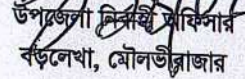 উপজেলা নির্বাহী অফিসার
বড়লেখা, মৌলভীবাজার